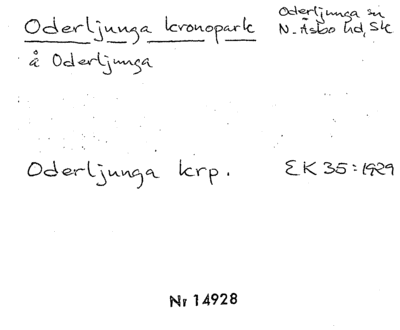 Oderljunga kronopark
Oderljunga sn
N. Åsbo hd, Sk
å Oderljunga
Oderljunga krp.
EK 35:1929
Nr 14928